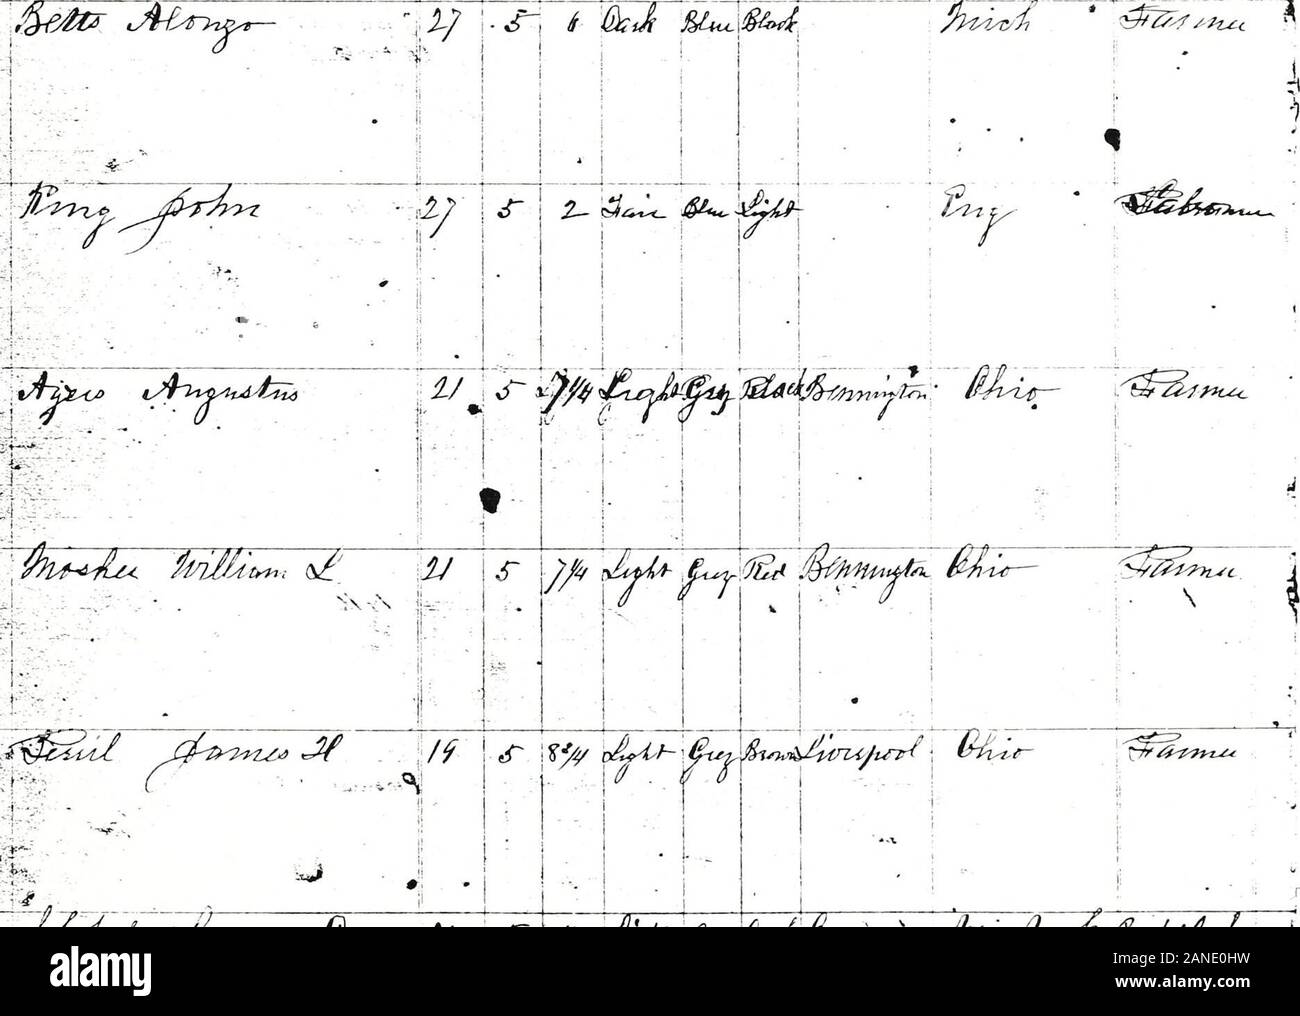 Betts Alonzo 27 5 6 Dark Blue Black Mich Farmer
King John 27 5 2 Fair Blue Light Eng
Ayres Augustus 21 5 7 1/4 Light Grey Black Bennington Ohio Farmer
Mosher William L 21 5 7 1/4 Light Grey Red Bennington Ohio Farmer
James H 19 5 8 3/4 Light Grey Brown Liverpool Ohio Farmer
alamy
Image ID: 2ANE0HW
www.alamy.com